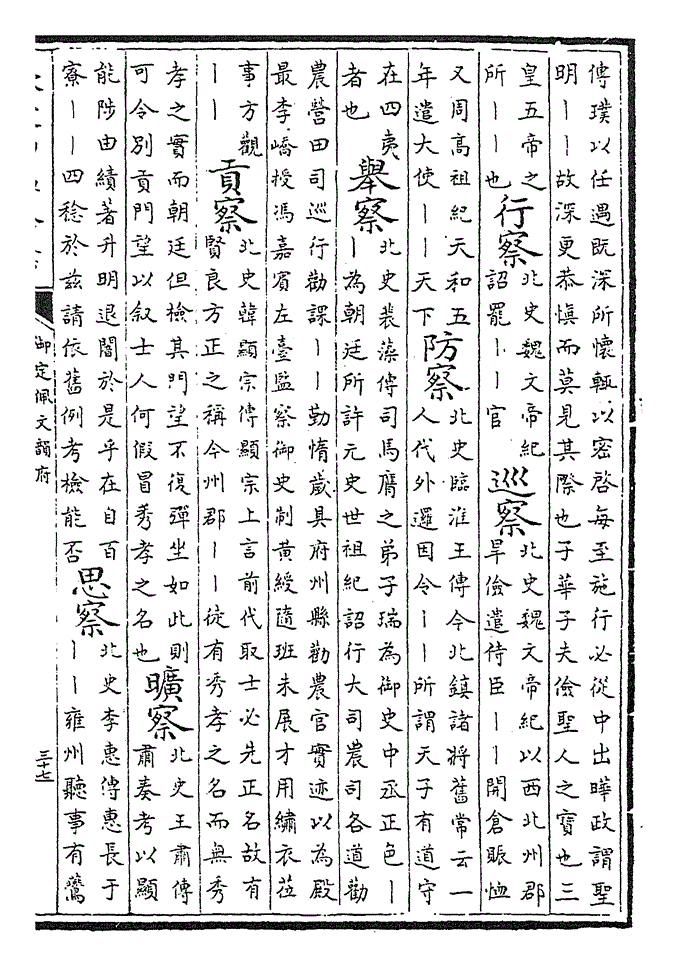 傳璞以任遇既深所懷輒以密啓每至施行必從中出曄政謂聖
明丨丨故深更恭慎而莫見其際也子華子夫儉聖人之寶也三
皇五帝之
所丨丨也
行察
北史魏文帝紀
詔罷丨丨官
巡察
北史魏文帝紀以西北州郡
旱儉遣侍臣丨丨開倉賑恤
又周高祖紀天和五
年遣大使丨丨天下
防察
北史臨淮王傳令北鎮諸將舊常云一
人代外邏因令丨丨所謂天子有道守
在四夷
者也
舉察
北史裴藻傳司馬膺之弟子瑞為御史中丞正色丨
丨為朝廷所許元史世祖紀詔行大司農司各道勸
農營田司巡行勸課丨丨勤惰歲具府州縣勸農官實迹以為殿
最李嶠授馮嘉賓左臺監察御史制黃綬隨班未展才用繡衣莅
事方觀
丨丨
貢察
北史韓顯宗傳顯宗上言前代取士必先正名故有
賢良方正之稱今州郡丨丨徒有秀孝之名而無秀
孝之實而朝廷但檢其門望不復彈坐如此則
可令別貢門望以叙士人何假冒秀孝之名也
曠察
北史王肅傳
肅奏考以顯
能陟由績著升明退闇於是乎在自百
寮丨丨四稔於兹請依舊例考檢能否
思察
北史李惠傳惠長于
丨丨雍州聽事有鷰
御定佩文韻府
三十七